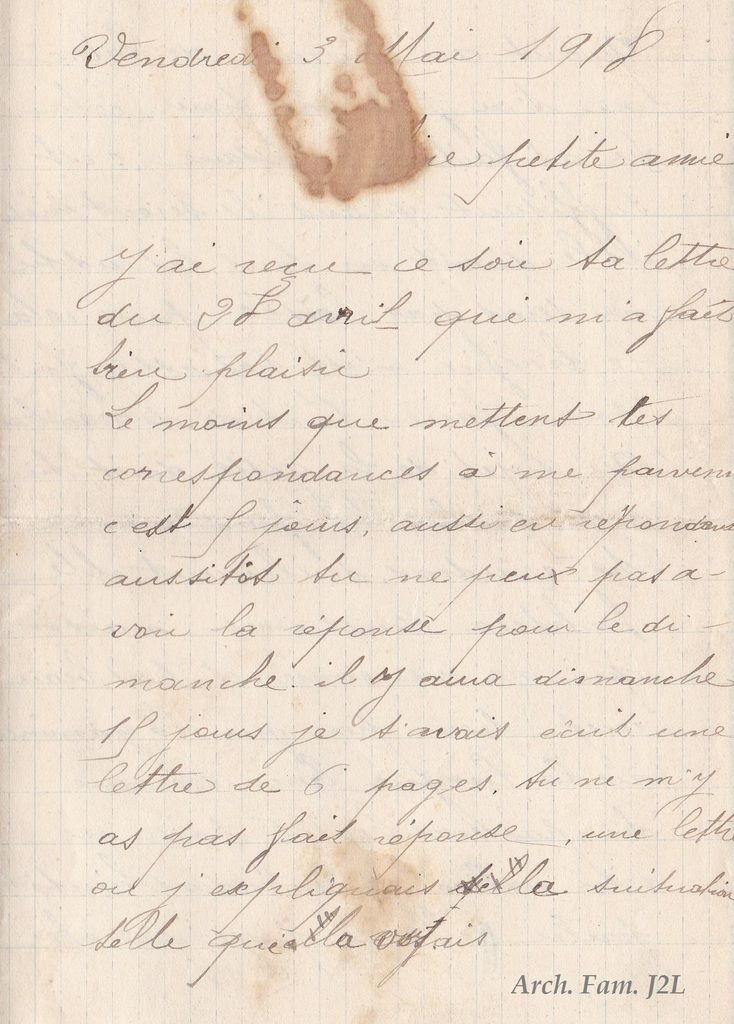 Vendredi 3 Mai 1918
petite amie
J'ai recu ce soir ta lettre
du 28 avril qui m'a fait
bien plaisir
Le moins que mettent tes
correspondances à me parvenir
c'est 5 jours, aussi en répondant
aussitôt tu ne peux pas a-
voir la réponse pour le di-
manche. il y aura dimanche
15 jours je t'avais écrit une
lettre de 6 pages, tu ne m'y
as pas fait réponse, une lettre
ou j'expliquais la suituation
telle que la voyais
Arch. Fam. J2L